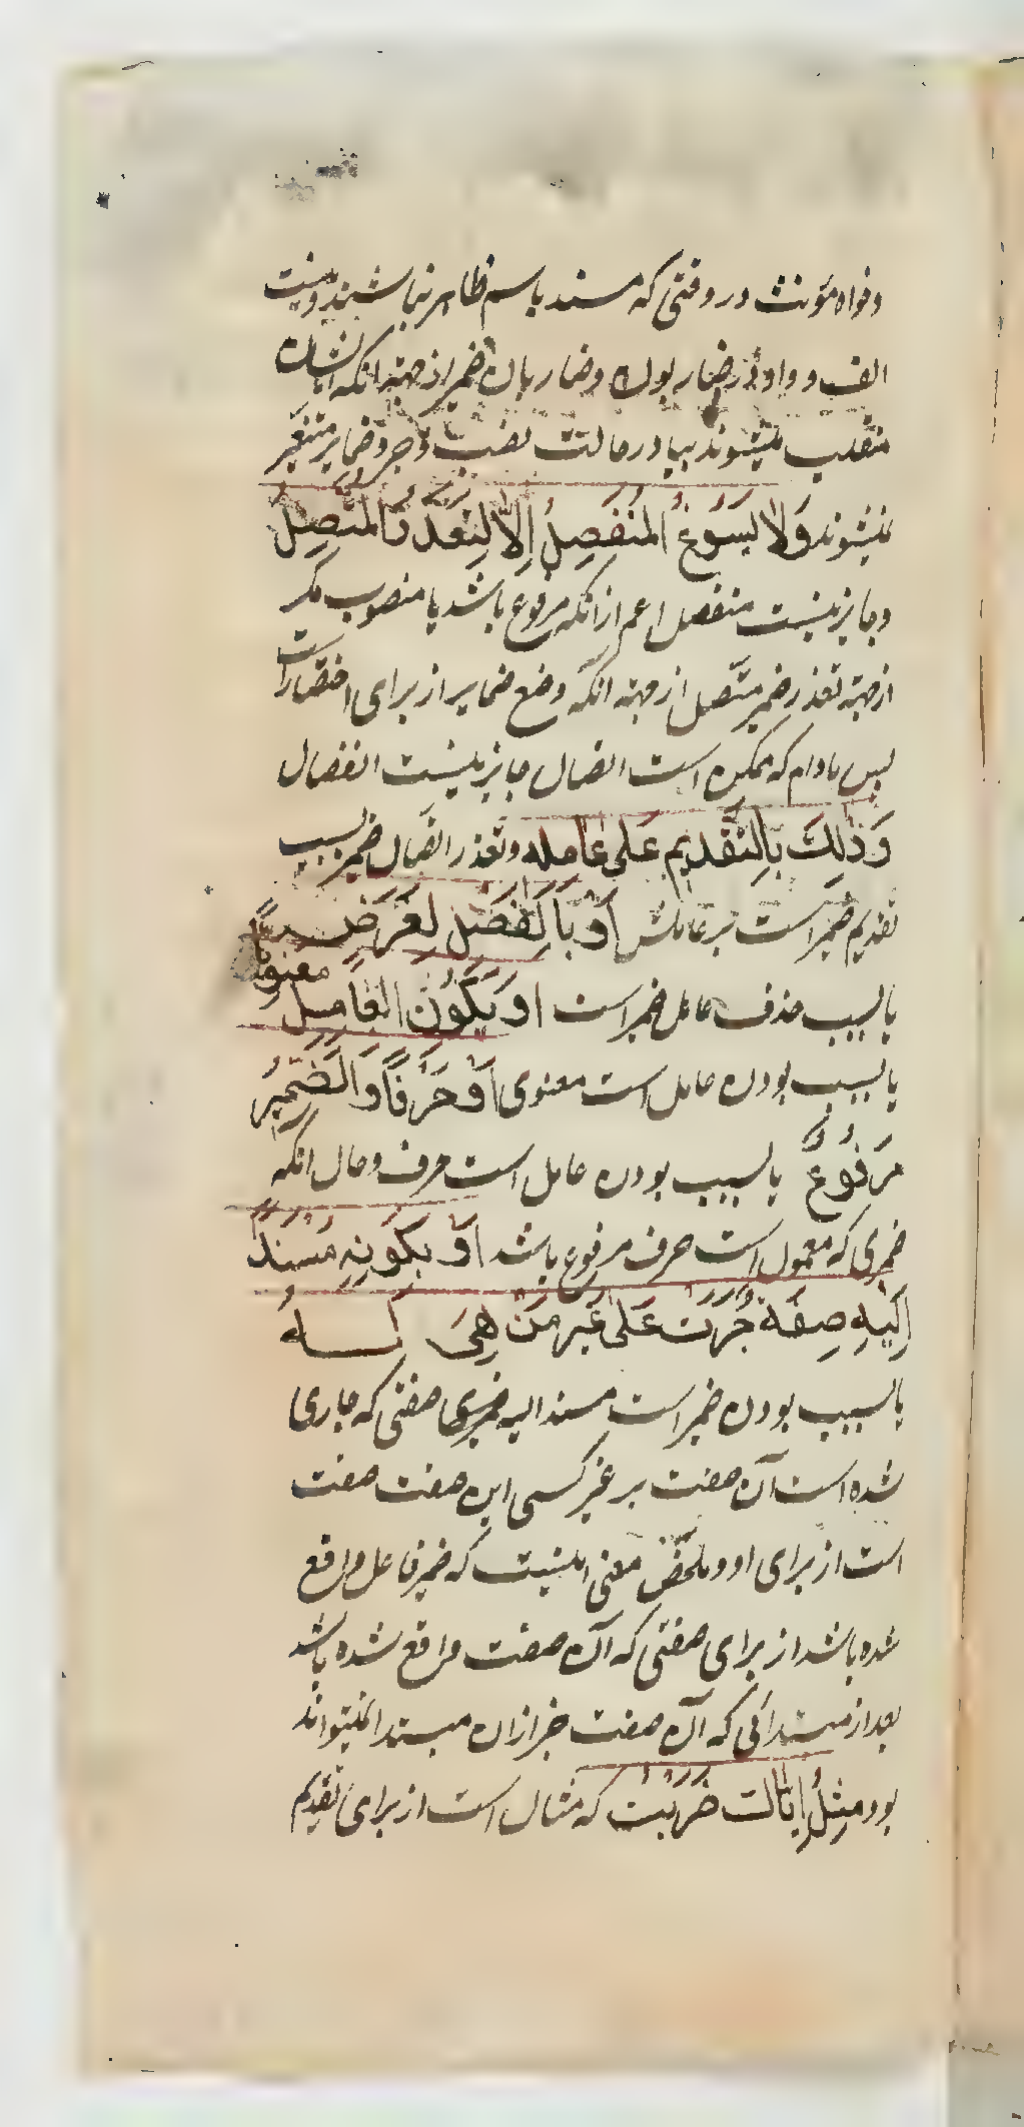 وخواه مؤنث در وقتی که مسند باسم ظاهر نباشند ونیست
الف و واو در ضاربون وضاربان ضمیر از جهة انکه ایشان
منقلب میشوند بیا در حالت نصب وجر وضمایر متغیر
نمیشوند وَلا یَسُوغُ المُنفَصِلُ اِلاّ لِتَعَذُّرِ المُتَّصِلِ
وجایز نیست منفصل اعم از انکه مرفوع باشد یا منصوب مکر
از جهة تعذر ضمیر متصل از جهة انکه وضع ضمایر از برای اختصار است
پس مادام که ممکن است اتصال جایز نیست انفصال
وَذٰلِکَ بِالتَّقدیمِ عَلیٰ عامِلِه وتعذر اتصال ضمیر بسبب
تقدیم ضمیر است بر عاملش اَو بِالفَصلِ لِغَرَضٍ
یا بسبب حذف عامل ضمیر است اَو یَکُونُ العامِلُ معنویًّا
یا بسبب بودن عامل است معنوی اَو حَرفًا وَالضَّمیرُ
مَرفُوعٌ یا بسبب بودن عامل است حرف وحال انکه
ضمیری که معمول است حرف مرفوع باشد اَو بِکَونِهِ مُسنَدًا
اِلَیهِ صِفَةٌ جُرِّت عَلیٰ غَیرِ مَن هِیَ لَهُ
یا بسبب بودن ضمیر است مسند الیه ضمیری صفتی که جاری
شده است آن صفت بر غیر کسی این صفت صفت
است از برای او وملخّص معنی اینست که ضمیر فاعل واقع
شده باشد از برای صفتی که آن صفت واقع شده باشد
بعد از مبتدائی که آن صفت خبر از ان مبتدا نمیتواند
بود مِثلُ اِیّاکَ ضَرَبتُ که مثال است از برای تقدیم